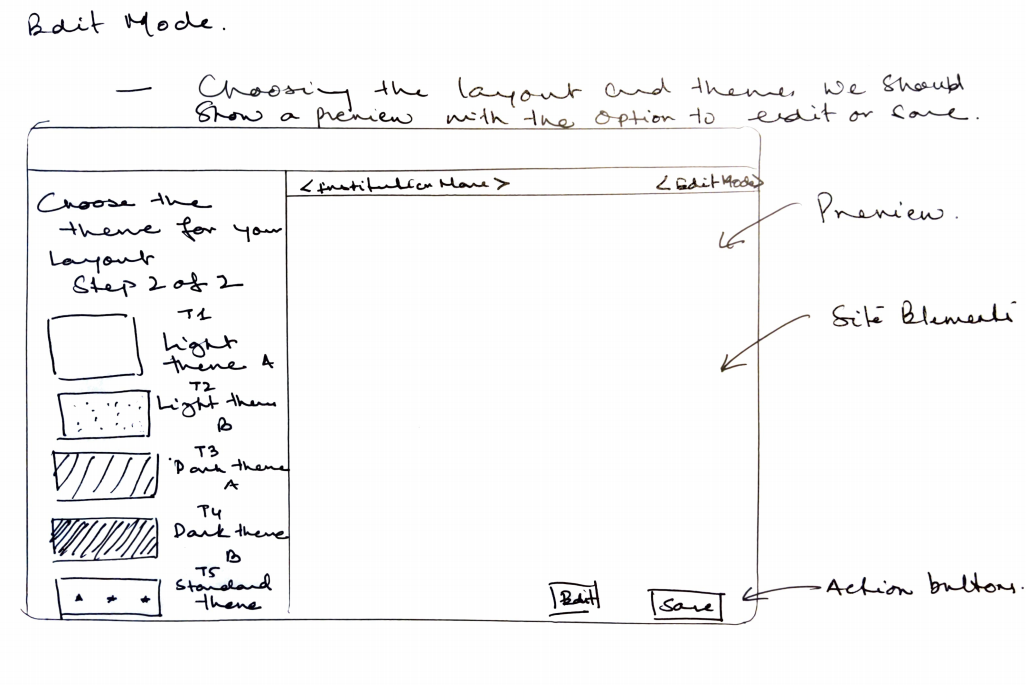 Edit Mode.
— Choosing the layout and theme, we should
show a preview with the option to edit or save.
<Institution Name> <Edit Mode>
Choose the
theme for your
Layout
Step 2 of 2
T1
Light
theme A
T2
Light theme
B
T3
Dark theme
A
T4
Dark theme
B
T5
Standard
theme
Edit
Save
Preview.
Site Elements
Action buttons.